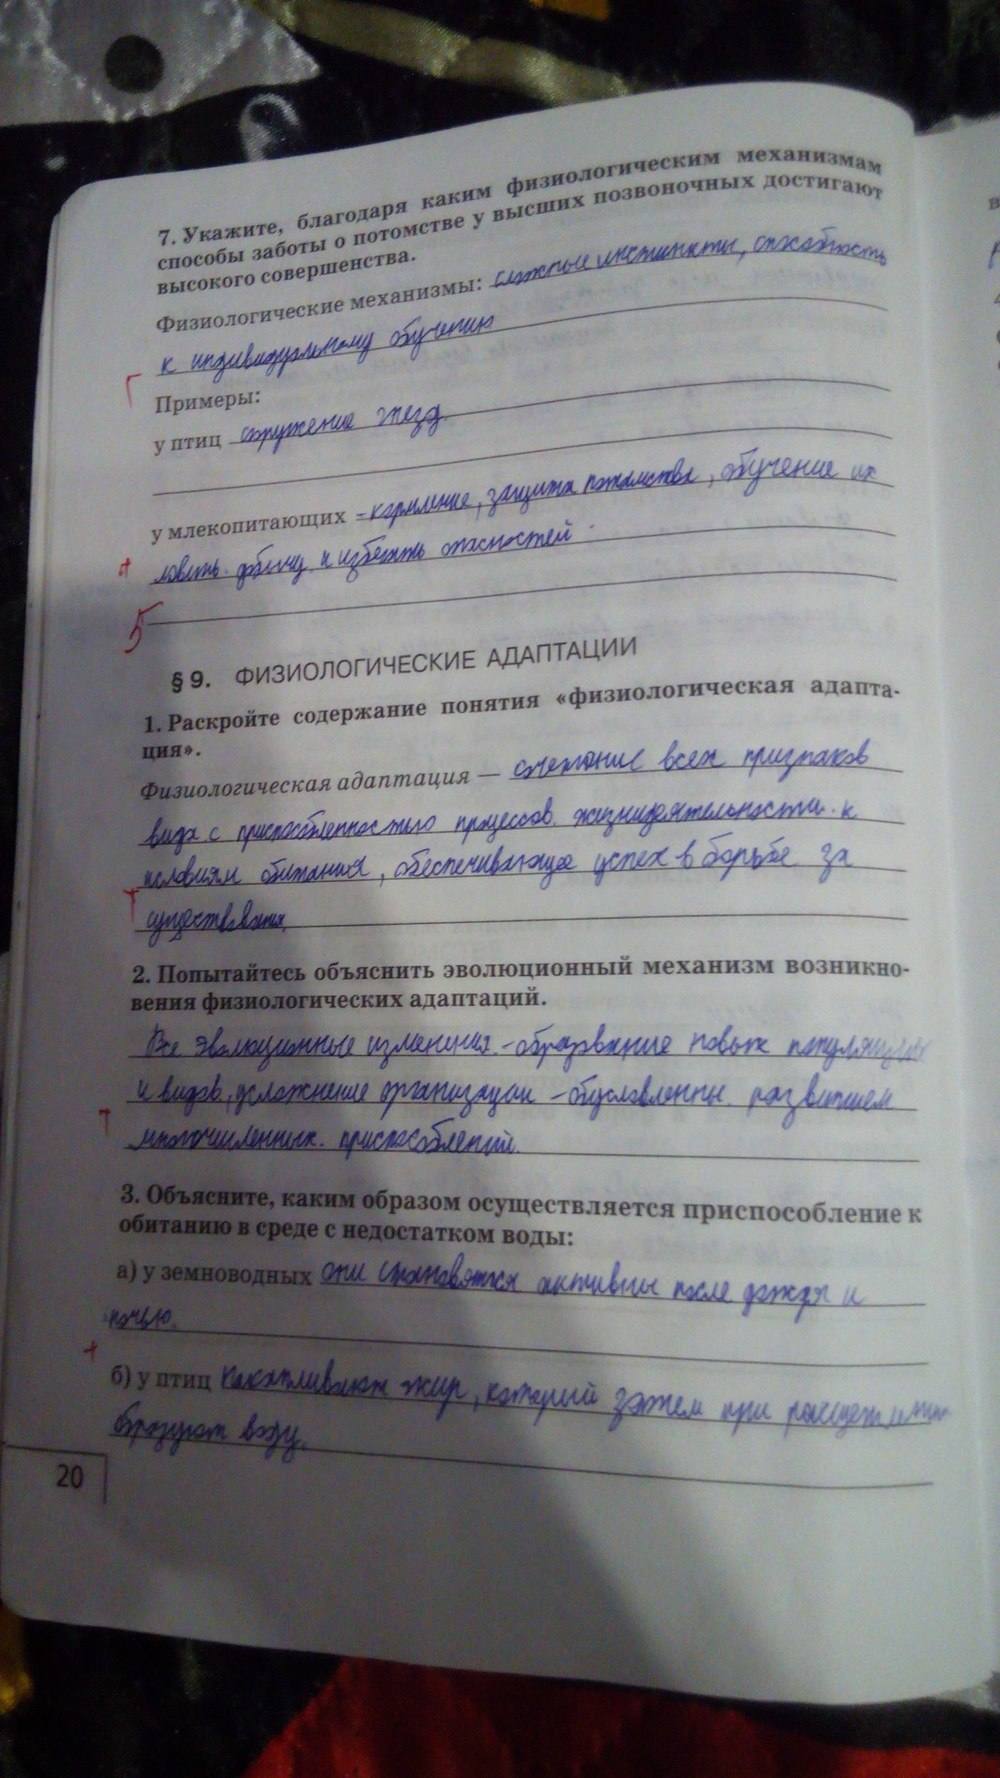 7. Укажите, благодаря каким физиологическим механизмам
способы заботы о потомстве у высших позвоночных достигают
высокого совершенства.
Физиологические механизмы: сложные инстинкты, способность
к индивидуальному обучению
Примеры:
у птиц сооружение гнезд.
у млекопитающих - кормление, защита потомства, обучение их
+ ловить добычу и избегать опасностей.
5
§ 9. ФИЗИОЛОГИЧЕСКИЕ АДАПТАЦИИ
1. Раскройте содержание понятия «физиологическая адапта-
ция».
Физиологическая адаптация — сочетание всех признаков
вида с приспособленностью процессов жизнедеятельности к
условиям обитания, обеспечивающее успех в борьбе за
существование.
2. Попытайтесь объяснить эволюционный механизм возникно-
вения физиологических адаптаций.
Все эволюционные изменения - образование новых популяций
и видов, усложнение организации - обусловленны развитием
многочисленных приспособлений.
3. Объясните, каким образом осуществляется приспособление к
обитанию в среде с недостатком воды:
а) у земноводных они становятся активны после дождя и
ночью.
+
б) у птиц накапливают жир, который затем при расщеплении
образует воду.
20